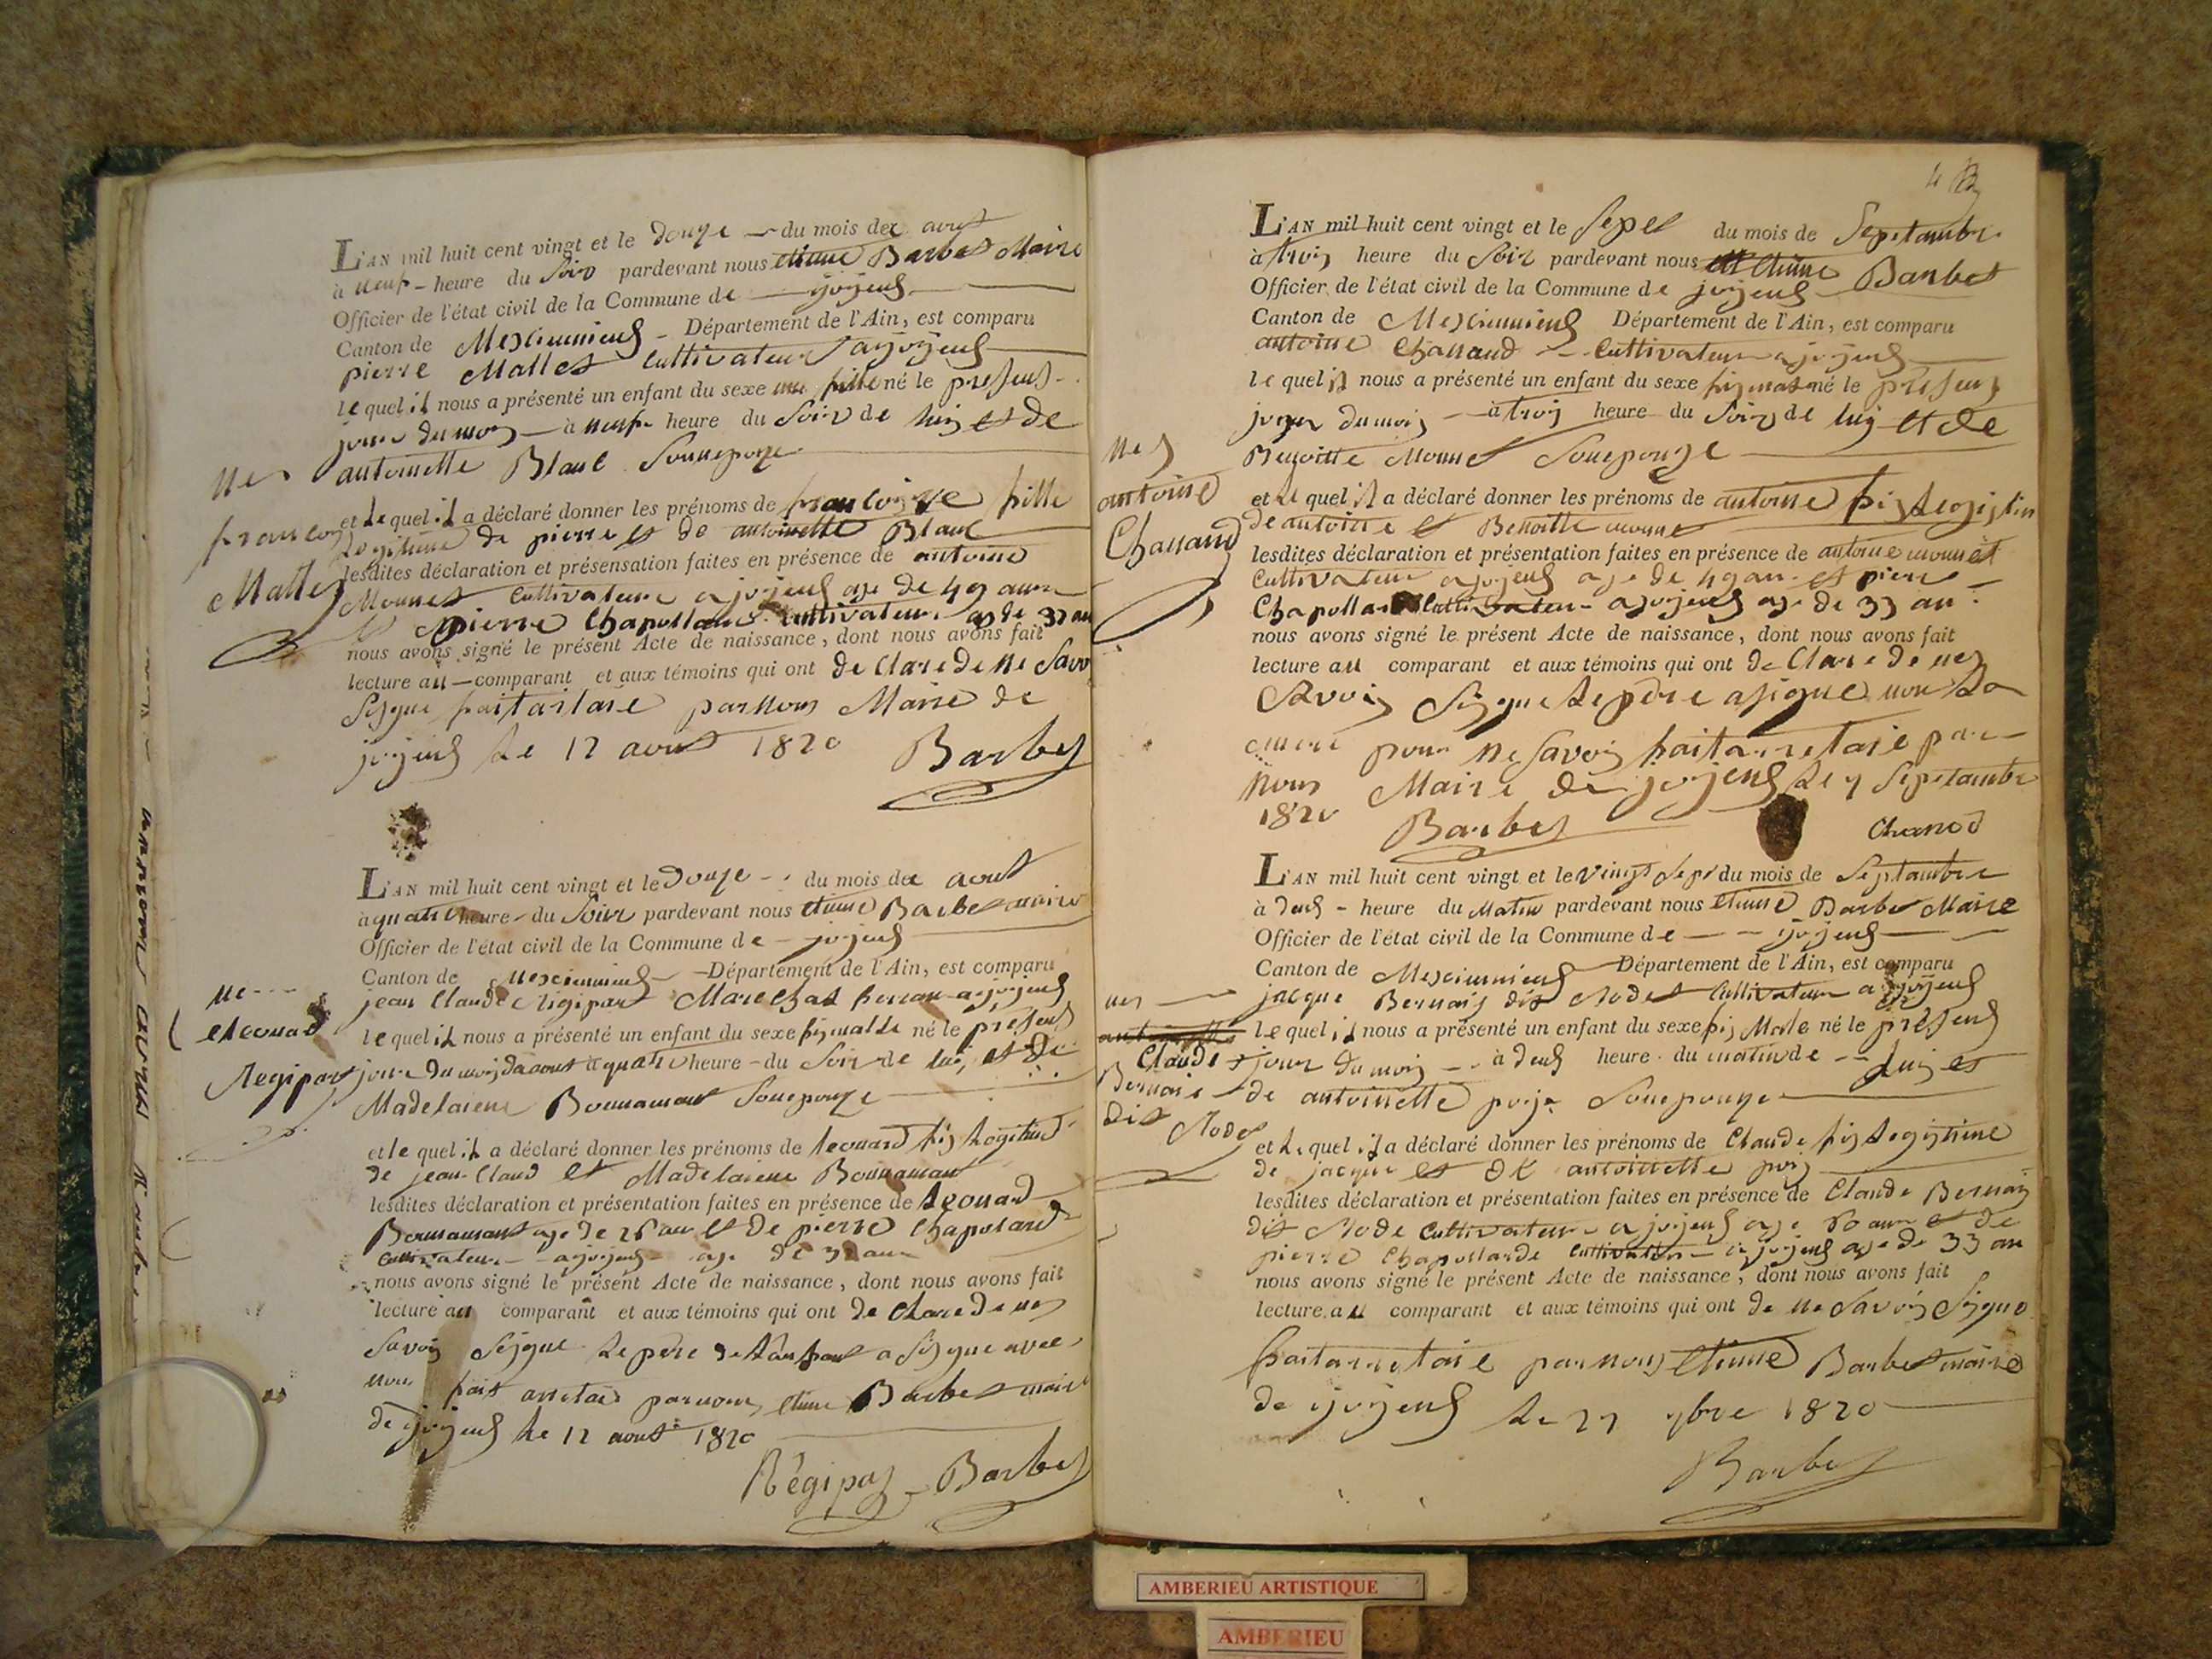 L'AN mil huit cent vingt et le douze du mois dex aout
à neuf heure du Soir pardevant nous etiene Barbet Maire
Officier de l'état civil de la Commune de joyeus
Canton de Meximieus Département de l'Ain, est comparu
pierre Mallet Cultivateur a joyeus
lequel il nous a présenté un enfant du sexe une fille né le present
jour du mois à neuf heure du Soir de luy et de
antoinette Blanc Son epouze
et le quel il a déclaré donner les prénoms de francoise fille
Legitime de pierre et de antoinette Blanc
lesdites déclaration et présensation faites en présence de antoine
Monnet Cultivateur a joyeus age de 49 ans
pierre Chapolland Cultivateur age de 32 an
nous avons signé le présent Acte de naissance, dont nous avons fait
lecture au comparant et aux témoins qui ont de Clare de ne Savo
Sisgne par nous Maire de
joyeus Le 12 aout 1820 Barbet
nes
francoise
Mallet
L'AN mil huit cent vingt et le Douze du mois dex aout
à quatre heure du Soir pardevant nous etiene Barbet maire
Officier de l'état civil de la Commune de joyeus
Canton de Meximieus Département de l'Ain, est comparu
jean Claude Régipas Marechal a joyeus
le quel il nous a présenté un enfant du sexe né le present
jour du mois à quatre heure du Soir de lui et de
Madelaiene Bonnamour Son epouze
et le quel il a déclaré donner les prénoms de Leonard fis Legitime
de jean Claud et Madelaiene Bonnamour
lesdites déclaration et présentation faites en présence de Leonard
Bonnamour age de 26 an et de pierre Chapoland
Cultivateur a joyeus age de 32 ans
nous avons signé le présent Acte de naissance, dont nous avons fait
lecture au comparant et aux témoins qui ont de Clare de nes
Savoir Seisgne Le pere a Sisgne avec
nous fait par nous etiene Barbet maire
de joyeus Le 12 aout 1820
Régipas Barbet
ne
Leonard
Regipas
L'AN mil huit cent vingt et le Sept du mois de Septembre
à trois heure du Soir pardevant nous Etiene Barbet
Officier de l'état civil de la Commune de joyeus
Canton de Meximieus Département de l'Ain, est comparu
antoine Chanaud Cultivateur a joyeus
le quel il nous a présenté un enfant du sexe né le present
jour du mois à trois heure du Soir de luy et de
Benoitte Monnet Son epouze
et le quel il a déclaré donner les prénoms de antoine fis
de antoine et Benoitte monnet
lesdites déclaration et présentation faites en présence de antoine monnet
Cultivateur a joyeus age de 49 an et pierre
Chapolland Cultivateur a joyeus age de 33 an
nous avons signé le présent Acte de naissance, dont nous avons fait
lecture au comparant et aux témoins qui ont de Clare de nes
Savoir Sisgne Le pere a signe non La
mere pour ne Savoir par
nous Maire de joyeus Le 7 Septambre
1820 Barbet Chanod
nes
antoine
Chanaud
L'AN mil huit cent vingt et le vingt Sept du mois de Septambre
à deus heure du Matin pardevant nous Etiene Barbet Maire
Officier de l'état civil de la Commune de joyeus
Canton de Meximieus Département de l'Ain, est comparu
jacque Bernais dit Cultivateur a joyeus
le quel il nous a présenté un enfant du sexe fis Male né le present
jour du mois à deus heure du matin de luy et
de antoinette Son epouze
et le quel il a déclaré donner les prénoms de Claude fis Legistime
de jacque et de antoinette
lesdites déclaration et présentation faites en présence de Claude Bernais
dit Cultivateur a joyeus age 60 ans et de
pierre Chapollarde Cultivateur a joyeus age de 33 an
nous avons signé le présent Acte de naissance, dont nous avons fait
lecture au comparant et aux témoins qui ont de ne Savoir Sisgne
par nous Etiene Barbet maire
de joyeus Le 27 7bre 1820
Barbet
nes
Claude
Bernais
dit
AMBERIEU ARTISTIQUE
AMBERIEU